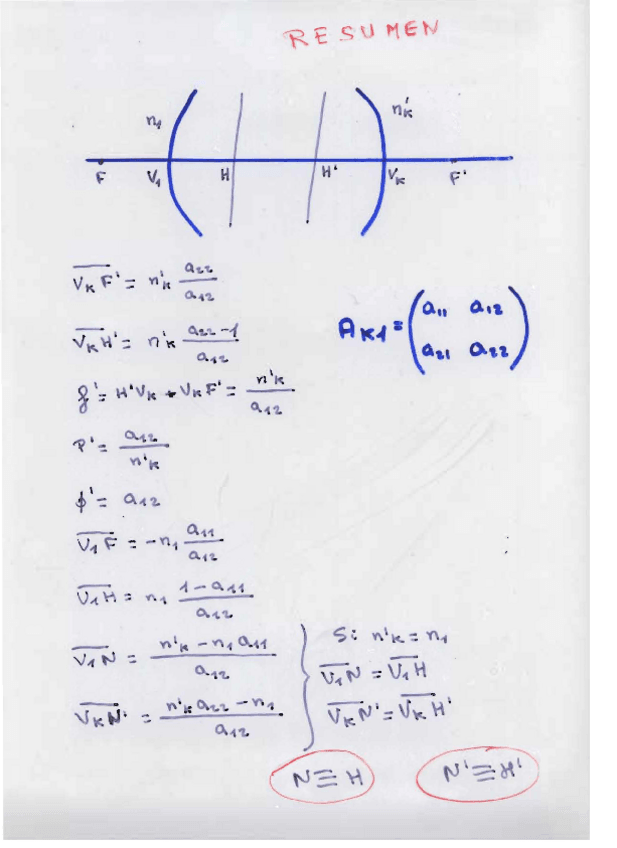 RESUMEN
n₁ n'ₖ
F V₁ H H' Vₖ F'
V̅ₖF̅' = n'ₖ a₂₂/a₁₂
V̅ₖH̅' = n'ₖ (a₂₂-1)/a₁₂
Aₖ₁ = (a₁₁ a₁₂
a₂₁ a₂₂)
f' = H'Vₖ + VₖF' = n'ₖ/a₁₂
P' = a₁₂/n'ₖ
ϕ' = a₁₂
V̅₁F̅ = -n₁ a₁₁/a₁₂
V̅₁H̅ = n₁ (1-a₁₁)/a₁₂
V̅₁N̅ = (n'ₖ - n₁a₁₁)/a₁₂
V̅ₖN̅' = (n'ₖa₂₂ - n₁)/a₁₂
Si n'ₖ = n₁
V̅₁N = V̅₁H
V̅ₖN' = V̅ₖH'
N ≡ H N' ≡ H'